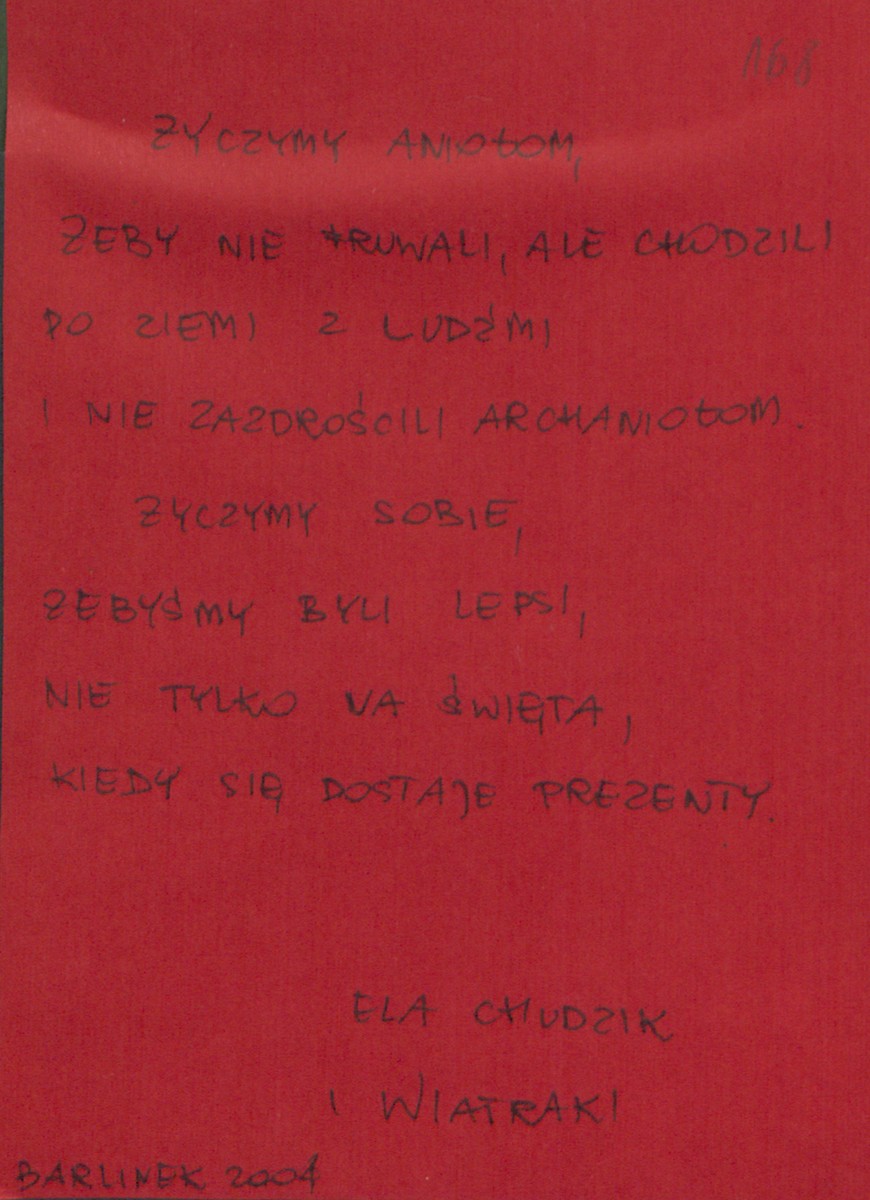 168
ŻYCZYMY ANIOŁOM,
ŻEBY NIE FRUWALI, ALE CHODZILI
PO ZIEMI Z LUDŹMI
I NIE ZAZDROŚCILI ARCHANIOŁOM.
ŻYCZYMY SOBIE,
ŻEBYŚMY BYLI LEPSI,
NIE TYLKO NA ŚWIĘTA,
KIEDY SIĘ DOSTAJE PREZENTY.
ELA CHUDZIK
I WIATRAKI
BARLINEK 2004